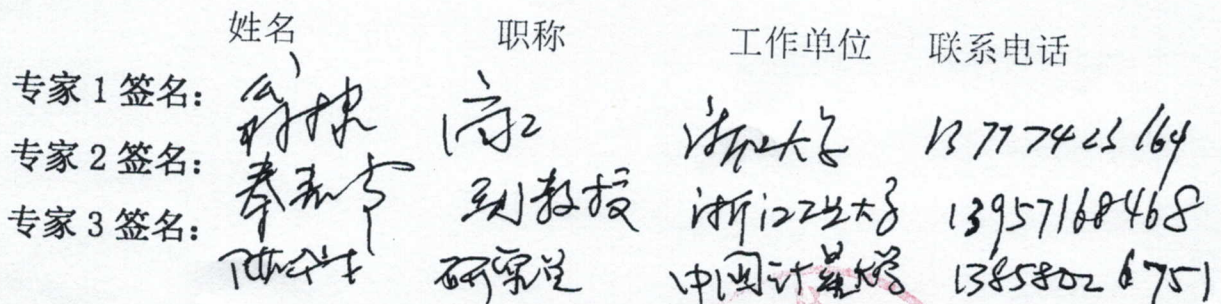 姓名 职称 工作单位 联系电话
专家1签名: 高工 浙江大学 13777423164
专家2签名: 副教授 浙江工业大学 13957168468
专家3签名: 陈 研究员 中国计量大学 13858026751